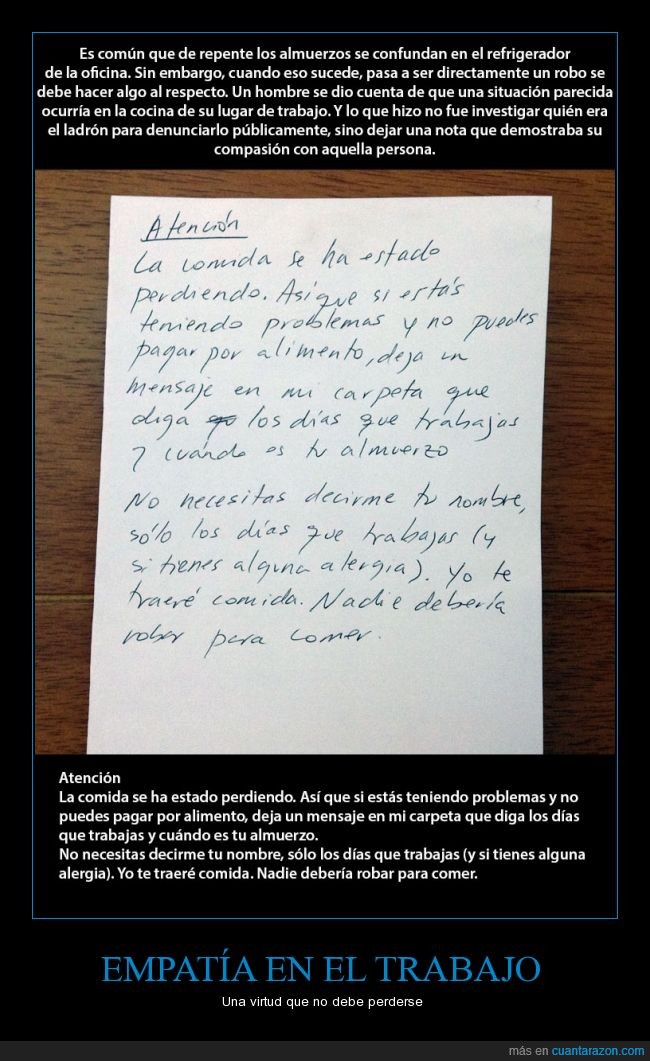 Es común que de repente los almuerzos se confundan en el refrigerador
de la oficina. Sin embargo, cuando eso sucede, pasa a ser directamente un robo se
debe hacer algo al respecto. Un hombre se dio cuenta de que una situación parecida
ocurría en la cocina de su lugar de trabajo. Y lo que hizo no fue investigar quién era
el ladrón para denunciarlo públicamente, sino dejar una nota que demostraba su
compasión con aquella persona.
Atención
La comida se ha estado
perdiendo. Así que si estás
teniendo problemas y no puedes
pagar por alimento, deja un
mensaje en mi carpeta que
diga los días que trabajas
y cuándo es tu almuerzo
No necesitas decirme tu nombre,
sólo los días que trabajas (y
si tienes alguna alergia). Yo te
traeré comida. Nadie debería
robar para comer.
Atención
La comida se ha estado perdiendo. Así que si estás teniendo problemas y no
puedes pagar por alimento, deja un mensaje en mi carpeta que diga los días
que trabajas y cuándo es tu almuerzo.
No necesitas decirme tu nombre, sólo los días que trabajas (y si tienes alguna
alergia). Yo te traeré comida. Nadie debería robar para comer.
EMPATÍA EN EL TRABAJO
Una virtud que no debe perderse
más en cuantarazon.com